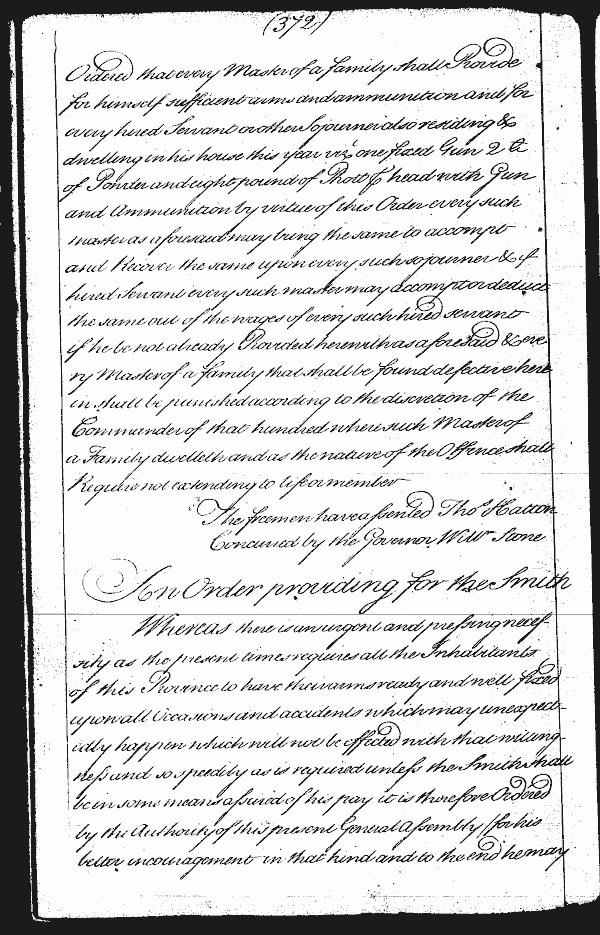 (372)
Ordered that every Master of a family shall Provide
for himself sufficient arms and ammunition and for
every hired Servant or other Sojourner also residing &
dwelling in his house this year viz one fixed Gun 2 lb
of Powder and eight pound of Shott p head with Gun
and Ammunition by virtue of this Order every such
master as aforesaid may bring the same to accompt
and Recover the same upon every such sojourner & if
hired Servant every such master may accompt or deduct
the same out of the wages of every such hired servant
if he be not already Provided herewith as aforesaid & eve
ry Master of a family that shall be found defective here
in shall be punished according to the discretion of the
Commander of that hundred where such Master of
a Family dwelleth and as the nature of the Offence shall
Require not extending to life or member
The freemen have assented Thos Hatton
Concured by the Governor Willm Stone
An Order providing for the Smith
Whereas there is an urgent and pressing necess
sity as the present times requires all the Inhabitants
of this Province to have their arms ready and well fixed
upon all Occasions and accidents which may unexpect-
edly happen which will not be effected with that willing-
ness and so speedily as is required unless the Smith shall
be in some means assured of his pay it is therefore Ordered
by the Authority of this present General Assembly (for his
better incouragement in that kind and to the end he may